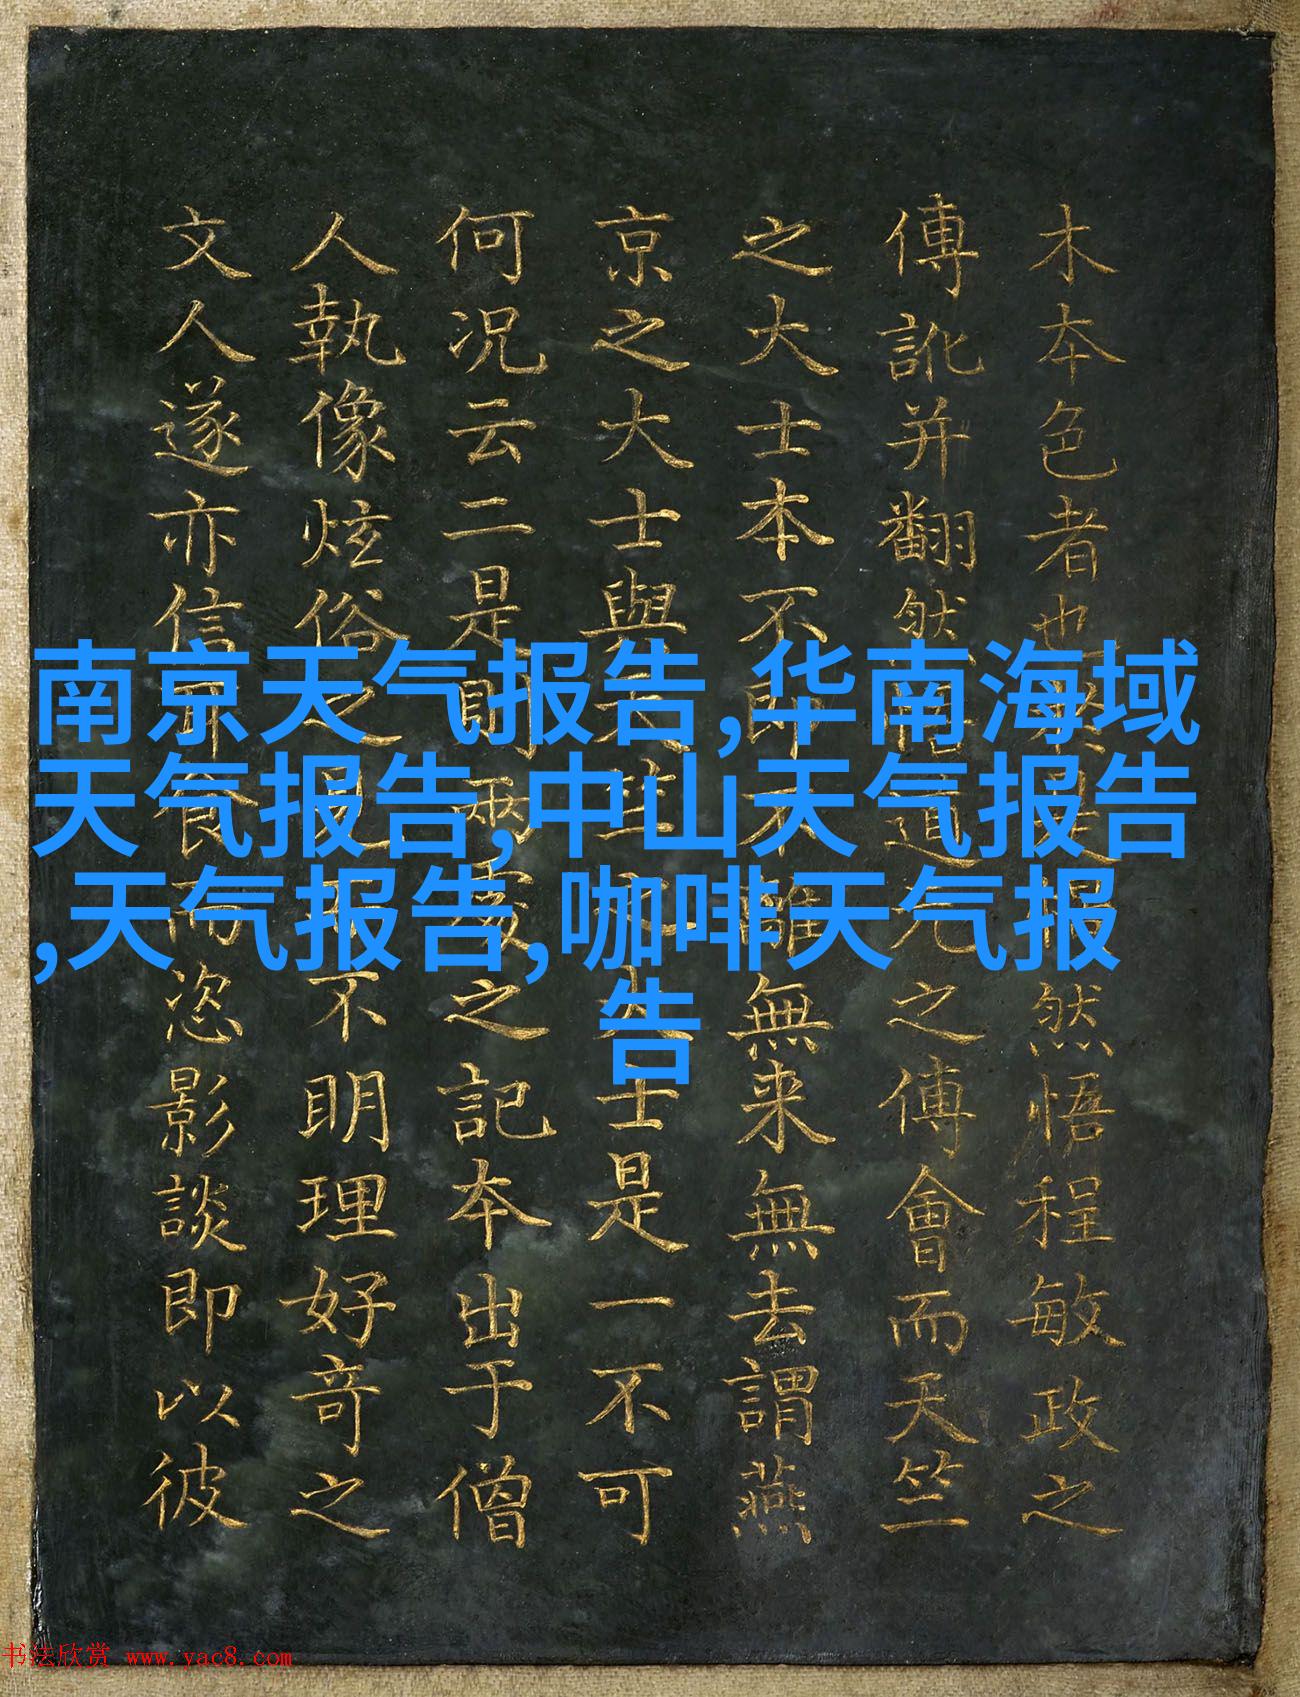 木本色者也然悟程敏政之
傅訛并翻然道之傅會而天竺
之大士本不即不離無来無去謂燕
京之大士與天竺之大士是一不可
何况云二是則兩處之記本出于僧
人執像炫俗之不明理好奇之
文人遂亦信耳食而恣影談即以彼
南京天气报告,华南海域
天气报告,中山天气报告
,天气报告,咖啡天气报
告
书法欣赏 www.yac8.com